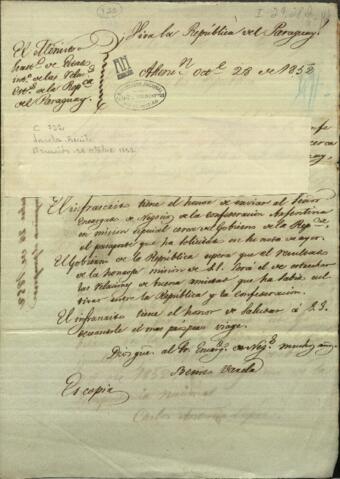 (122)
Viva la República del Paraguay!
El Ministro
Secret.º de Estado
int.º de las Relac.s
Ext.s de la Rep.ca
del Paraguay.
Asun.n Oct.e 28 de 1852
C 722
Varela, Benito
Asunción 28 octubre 1852
El infrascrito tiene el honor de enviar al Señor
Encargado de Negocios de la Confederación Argentina
en misión especial cerca del Gobierno de la Rep.ca
el pasaporte que ha solicitado en su nota de ayer.
El Gobierno de la República espera que el resultado
de la honrosa misión de S.S. será el de estrechar
las relaciones de buena amistad que ha sabido cul
tivar entre la República y la Confederación.
El infrascrito tiene el honor de saludar á S.S.
deseandole el mas prospero viage.
Dios gue. al Sr. Encarg.o de Neg.s muchos años.
Benito Varela
Es copia